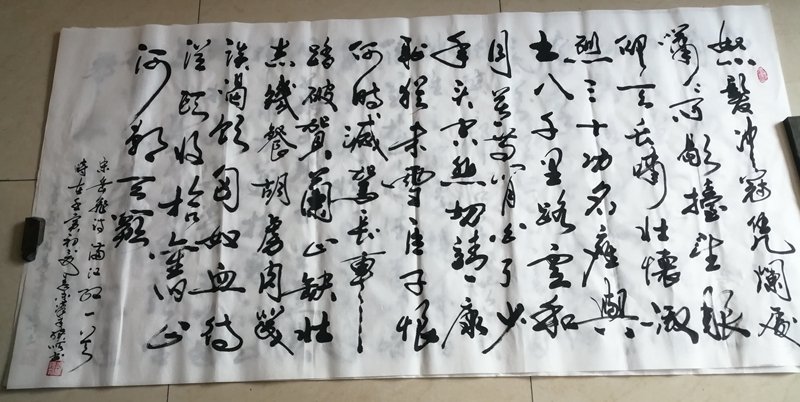 怒髮冲冠凭闌處
瀟〻雨歇擡望眼
仰天長嘯壯懷激
烈三十功名塵與
土八千里路雲和
月莫等閒白了少
年頭空悲切靖康
恥猶未雪臣子恨
何時滅駕長車
踏破賀蘭山缺壯
志饑餐胡虜肉笑
談渴飲匈奴血待
從頭收拾舊山
河朝天闕
宋岳飛詩滿江紅一首
時在壬寅初夏